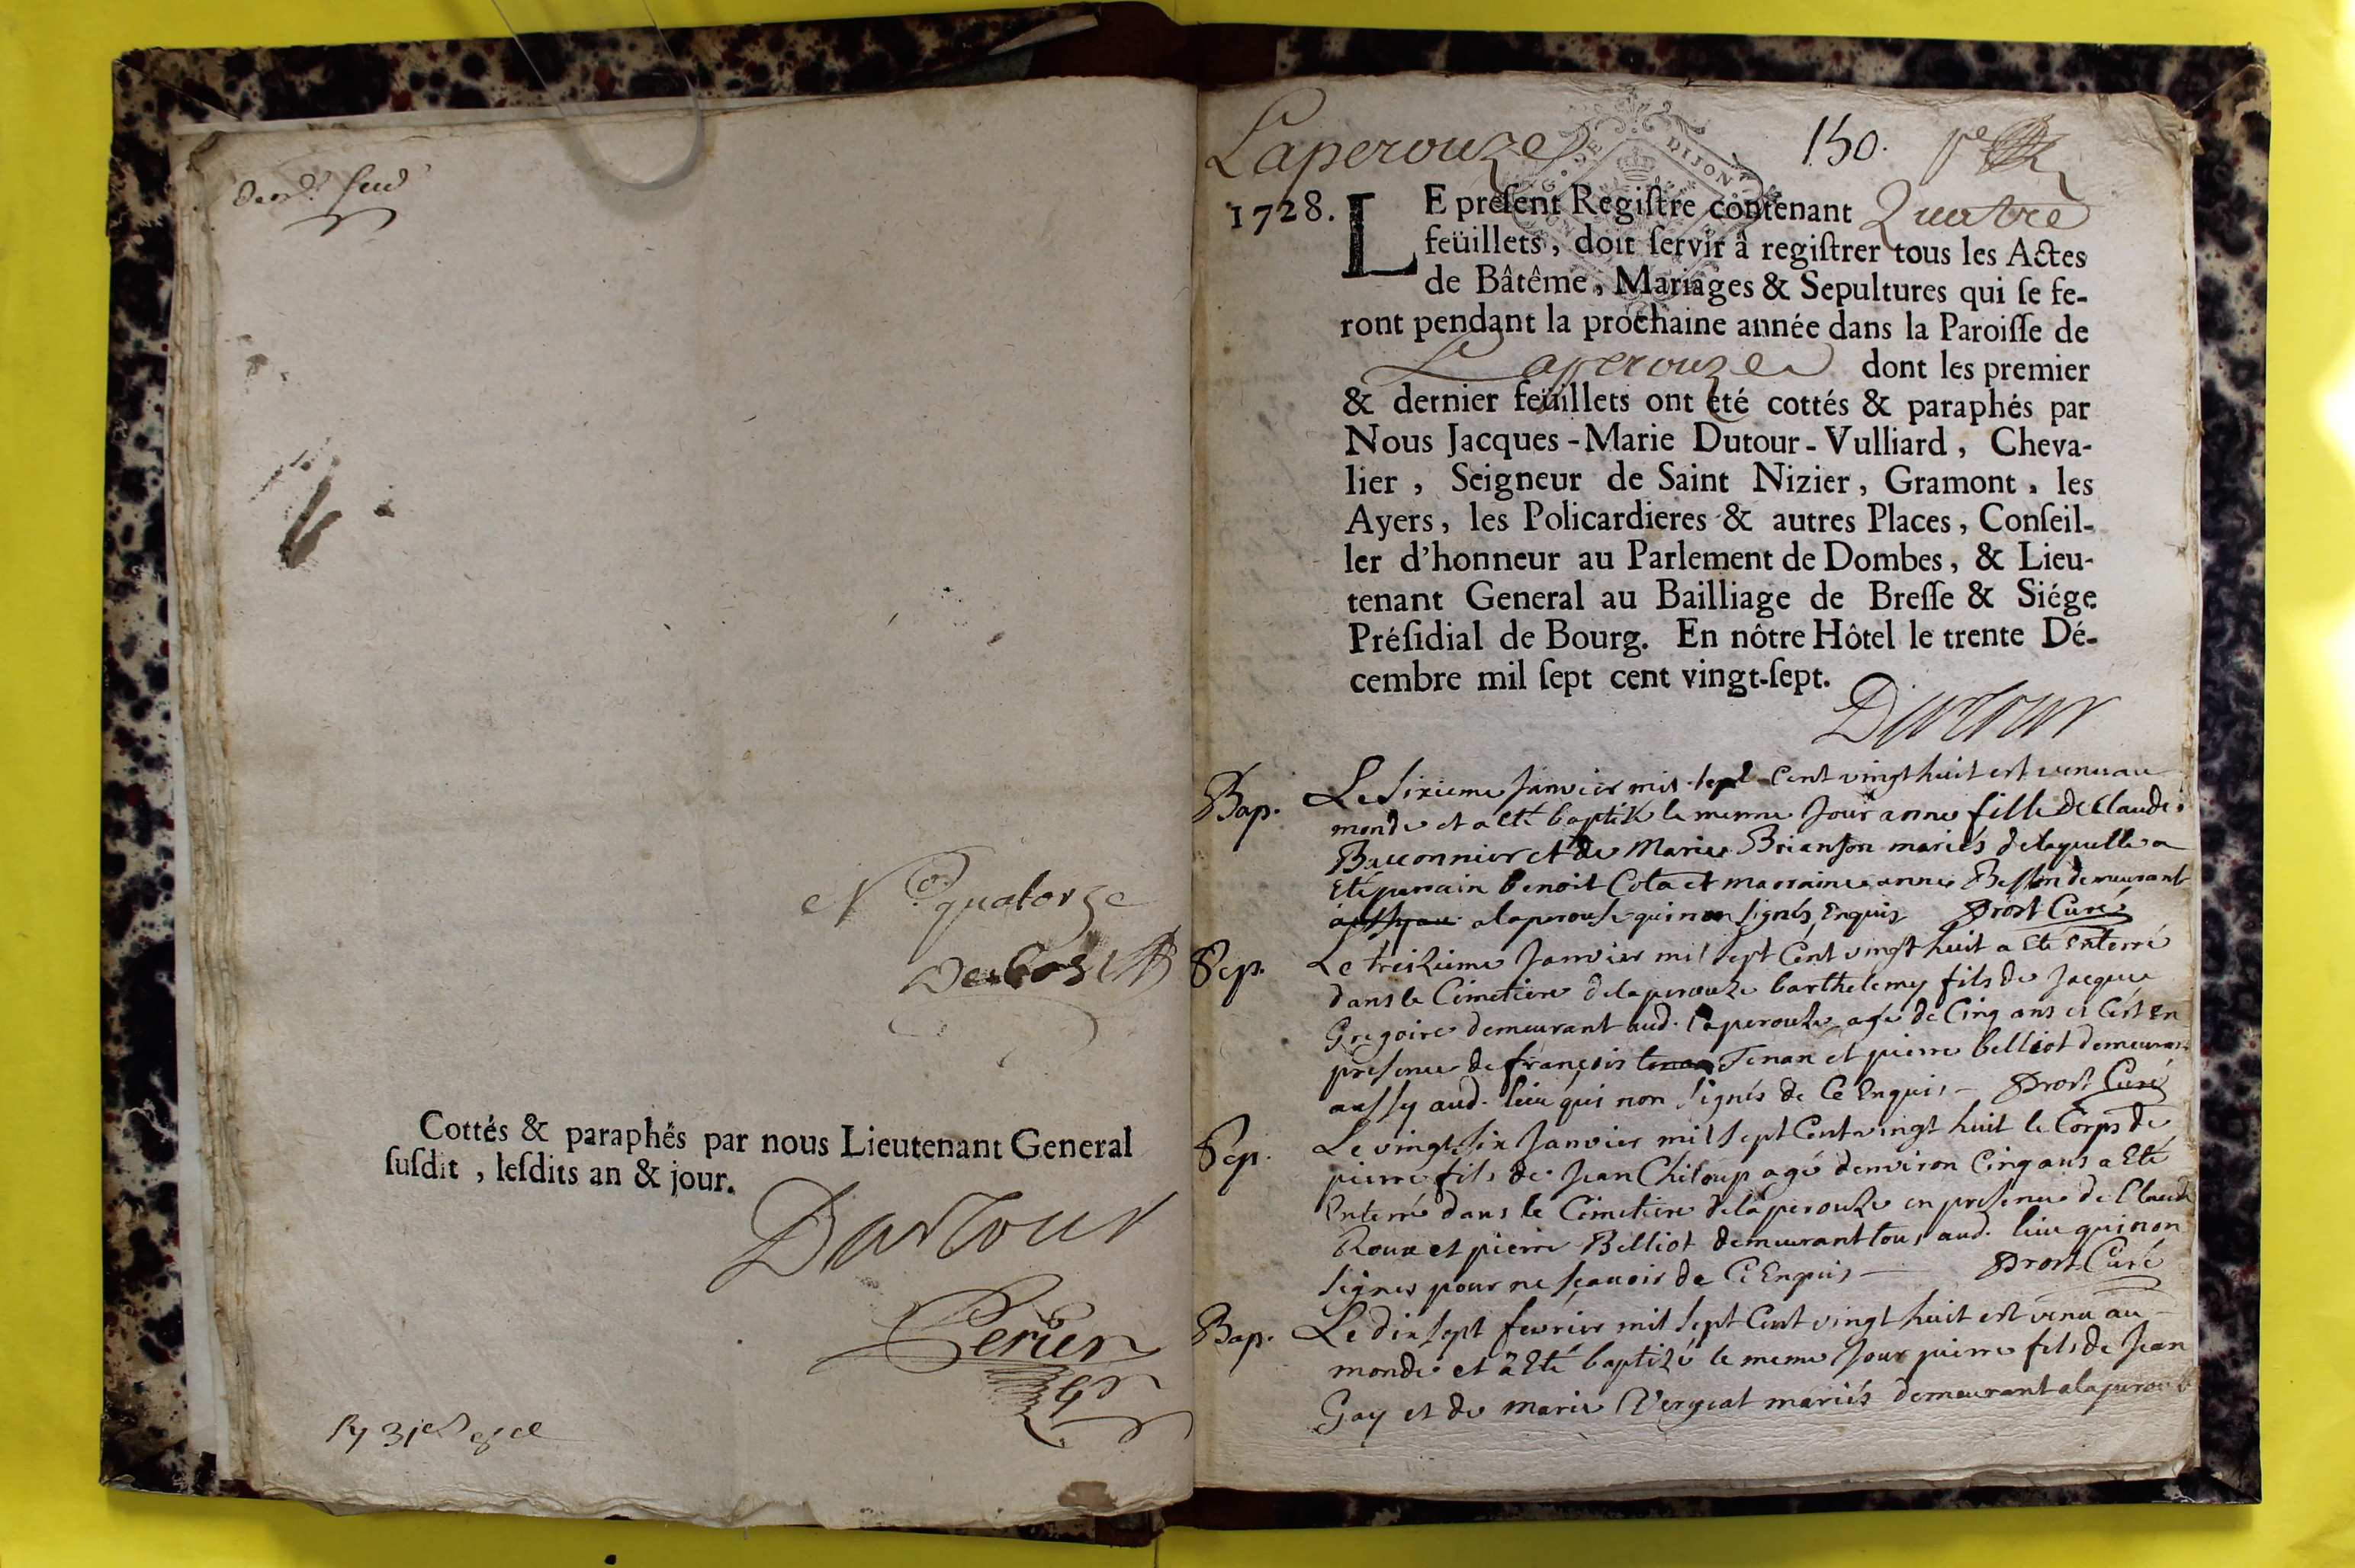 quatorze
Cottés & paraphés par nous Lieutenant General
susdit, lesdits an & jour.
Dutour
Perier
Laperouze
150.
DE DIJON
1728. LE present Registre contenant Quatre
feüillets, doit servir à registrer tous les Actes
de Bâtême, Mariages & Sepultures qui se fe-
ront pendant la prochaine année dans la Paroisse de
Laperouze dont les premier
& dernier feüillets ont été cottés & paraphés par
Nous Jacques-Marie Dutour-Vulliard, Cheva-
lier, Seigneur de Saint Nizier, Gramont, les
Ayers, les Policardieres & autres Places, Conseil-
ler d'honneur au Parlement de Dombes, & Lieu-
tenant General au Bailliage de Bresse & Siége
Présidial de Bourg. En nôtre Hôtel le trente Dé-
cembre mil sept cent vingt-sept.
Dutour
Bap. Le sixieme Janvier mil sept Cent vingt huit est venu au
monde et a eté baptisé le meme Jour anne fille de Claude
Baconnier et de Marie Brianson mariés delaquelle a
Eté parain benoit Cota et marraine anne Besson demeurant
alaperouse qui non signés Enquis Prost Curé
Sep. Le treizieme Janvier mil sept Cent vingt huit a Eté Enterré
dans le Cimetiere delaperouze barthelemy fils de Jacque
Gregoire demeurant aud. laperouze agé de Cinq ans et C'est En
presence de françois Tenan et pierre belliot demeurant
aussy aud. lieu qui non signés de Ce Enquis Prost Curé
Sep. Le vingt six Janvier mil sept Cent vingt huit le Corps de
pierre fils de Jean Chiloup agé denviron Cinq ans a Eté
Enterré dans le Cimetiere delaperouze en presence de Claude
Roux et pierre Belliot demeurant tous aud. lieu qui non
signes pour ne sçauoir de Ce Enquis Prost Curé
Bap. Le dix sept fevrier mil sept Cent vingt huit est venu au
monde et a Eté baptizé le meme Jour pierre fils de Jean
Gay et de marie Vergeat mariés demeurant alaperouze